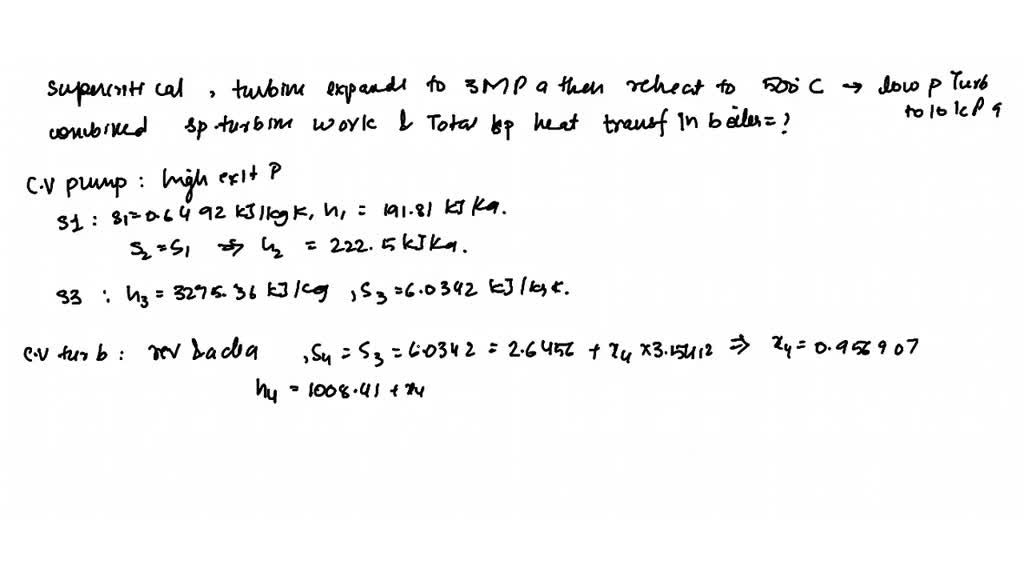 supercritical , turbine expands to 3MPa then reheat to 500°C → low p Turb
to 10 kPa
combined sp turbine work & Total sp heat transf in boiler=?
C.V pump : high exit P
S1 : S₁=0.6492 kJ/kgK, h₁ = 191.81 kJ/Kg.
S₂=S₁ ⇒ h₂ = 222.5 kJ/Kg.
S3 : h₃=3275.36 kJ/kg , S₃=6.0342 kJ/kgK.
C.V turb : rev &adia , S₄=S₃=6.0342=2.6456 + x₄×3.15412 ⇒ x₄=0.956907
h₄ =1008.41+x₄